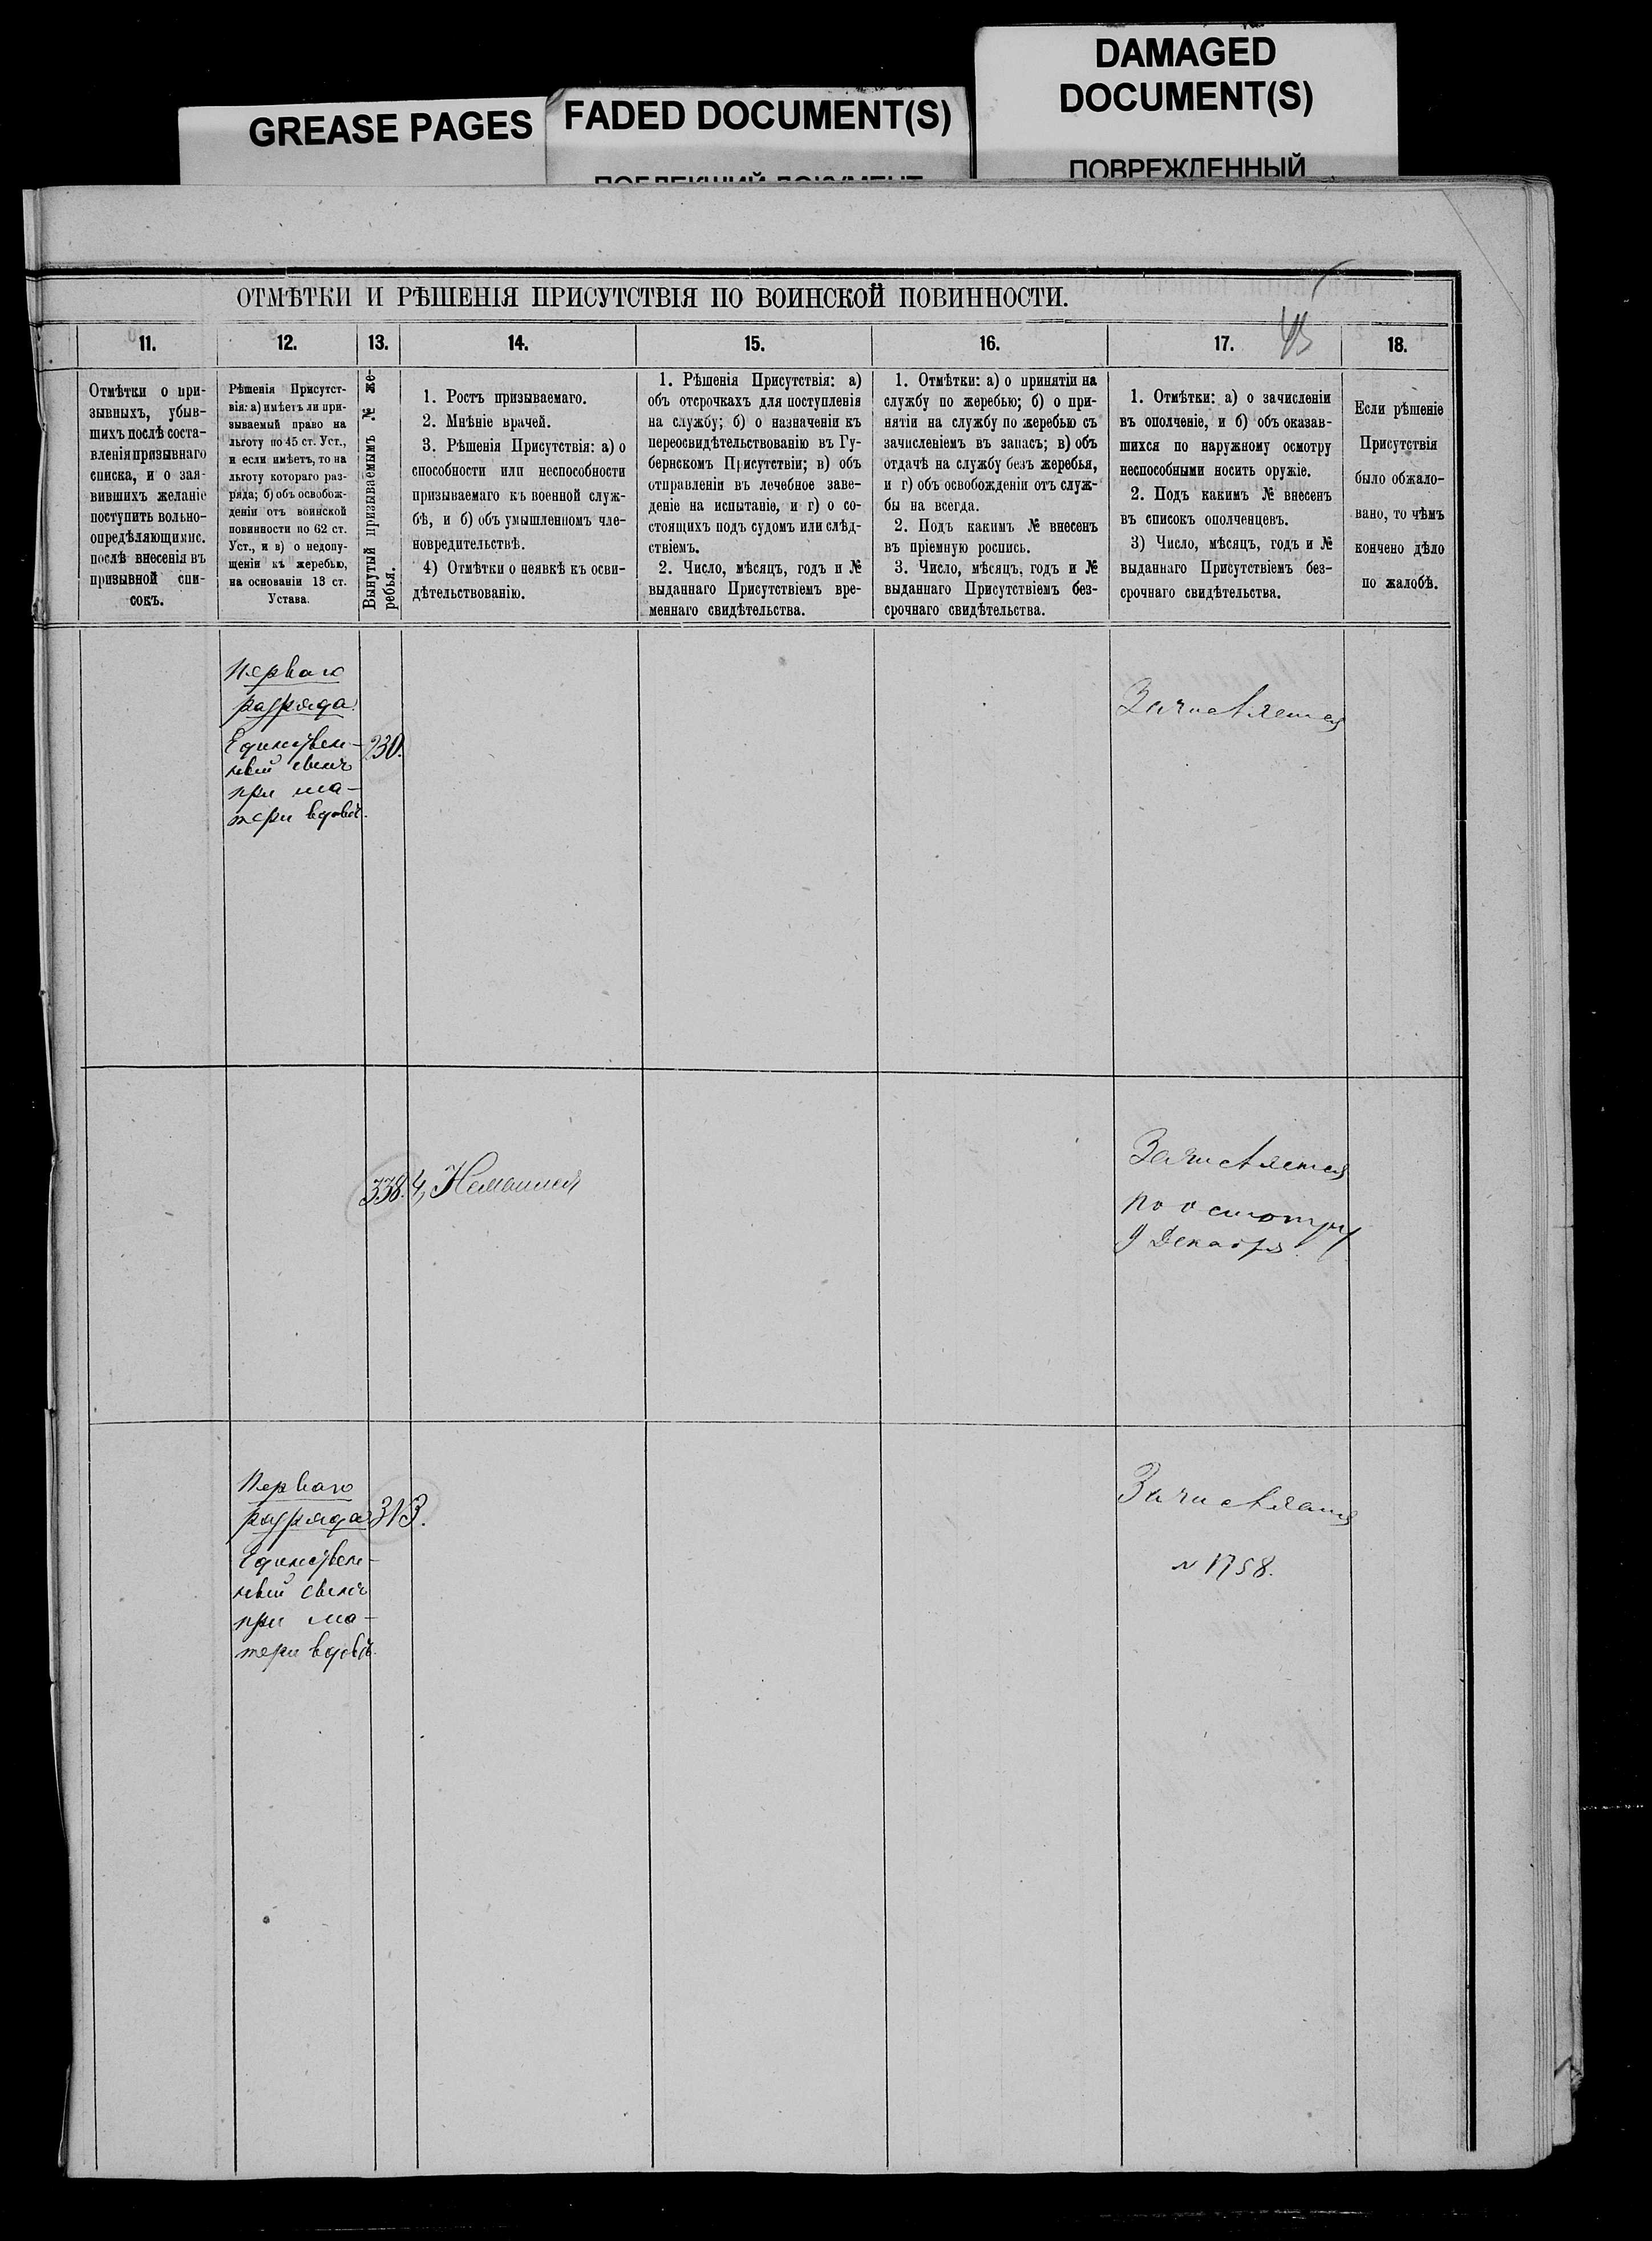 GREASE PAGES
FADED DOCUMENT(S)
DAMAGED
DOCUMENT(S)
ПОВРЕЖДЕННЫЙ
ОТМѢТКИ И РѢШЕНІЯ ПРИСУТСТВІЯ ПО ВОИНСКОЙ ПОВИННОСТИ.
11.
12.
13.
14.
15.
16.
17.
18.
Отмѣтки о при-
зывныхъ, убыв-
шихъ послѣ соста-
вленія призывнаго
списка, и о зая-
вившихъ желаніе
поступить вольно-
опредѣляющимис.
послѣ внесенія въ
призывной спи-
сокъ.
Рѣшенія Присутст-
вія: а) имѣетъ ли при-
зываемый право на
льготу по 45 ст. Уст.,
и если имѣетъ, то на
льготу котораго раз-
ряда; б) объ освобож-
деніи отъ воинской
повинности по 62 ст.
Уст., и в) о недопу-
щеніи къ жеребью,
на основаніи 13 ст.
Устава.
Вынутый призываемымъ № же-
ребья.
1. Ростъ призываемаго.
2. Мнѣніе врачей.
3. Рѣшенія Присутствія: а) о
способности или неспособности
призываемаго къ военной служ-
бѣ, и б) объ умышленномъ чле-
новредительствѣ.
4) Отмѣтки о неявкѣ къ осви-
дѣтельствованію.
1. Рѣшенія Присутствія: а)
объ отсрочкахъ для поступленія
на службу; б) о назначеніи къ
переосвидѣтельствованію въ Гу-
бернскомъ Присутствіи; в) объ
отправленіи въ лечебное заве-
деніе на испытаніе, и г) о со-
стоящихъ подъ судомъ или слѣд-
ствіемъ.
2. Число, мѣсяцъ, годъ и №
выданнаго Присутствіемъ вре-
меннаго свидѣтельства.
1. Отмѣтки: а) о принятіи на
службу по жеребью; б) о при-
нятіи на службу по жеребью съ
зачисленіемъ въ запасъ; в) объ
отдачѣ на службу безъ жеребья,
и г) объ освобожденіи отъ служ-
бы на всегда.
2. Подъ какимъ № внесенъ
въ пріемную роспись.
3. Число, мѣсяцъ, годъ и №
выданнаго Присутствіемъ без-
срочнаго свидѣтельства.
1. Отмѣтки: а) о зачисленіи
въ ополченіе, и б) объ оказав-
шихся по наружному осмотру
неспособными носить оружіе.
2. Подъ какимъ № внесенъ
въ списокъ ополченцевъ.
3) Число, мѣсяцъ, годъ и №
выданнаго Присутствіемъ без-
срочнаго свидѣтельства.
Если рѣшеніе
Присутствія
было обжало-
вано, то чѣмъ
кончено дѣло
по жалобѣ.
Перваго
разряда
Единствен-
ный сынъ
при ма-
тери вдовѣ.
230.
Зачисляется
338.
4,
Зачисляется
по осмотру
9 Декабря
Перваго
разряда
Единствен-
ный сынъ
при ма-
тери вдовѣ.
313.
Зачисляется
№ 1758.